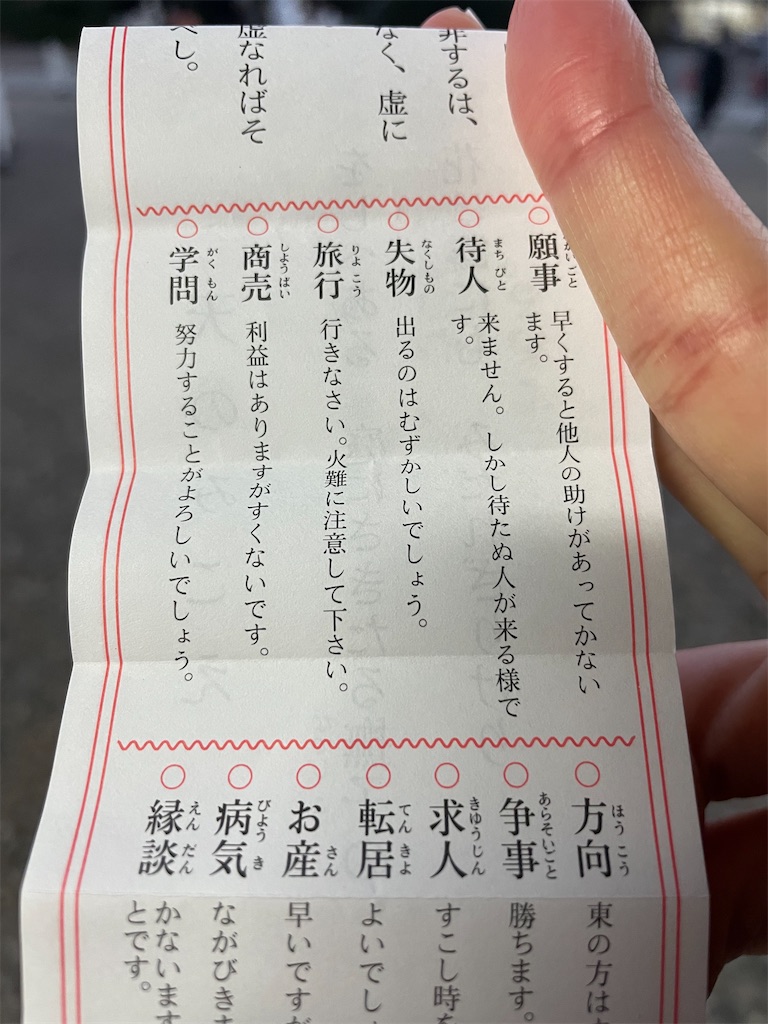 非するは、
なく、虚に
虚なればそ
べし。
○願事 がいごと
早くすると他人の助けがあってかない
ます。
○待人 まちびと
来ません。しかし待たぬ人が来る様で
す。
○失物 なくしもの
出るのはむずかしいでしょう。
○旅行 りよこう
行きなさい。火難に注意して下さい。
○商売 しようばい
利益はありますがすくないです。
○学問 がくもん
努力することがよろしいでしょう。
○方向 ほうこう
東の方は
○争事 あらそいごと
勝ちます。
○求人 きゆうじん
すこし時を
○転居 てんきよ
よいでしょ
○お産 さん
早いですが
○病気 びようき
ながびきま
○縁談 えんだん
かないます
とです。